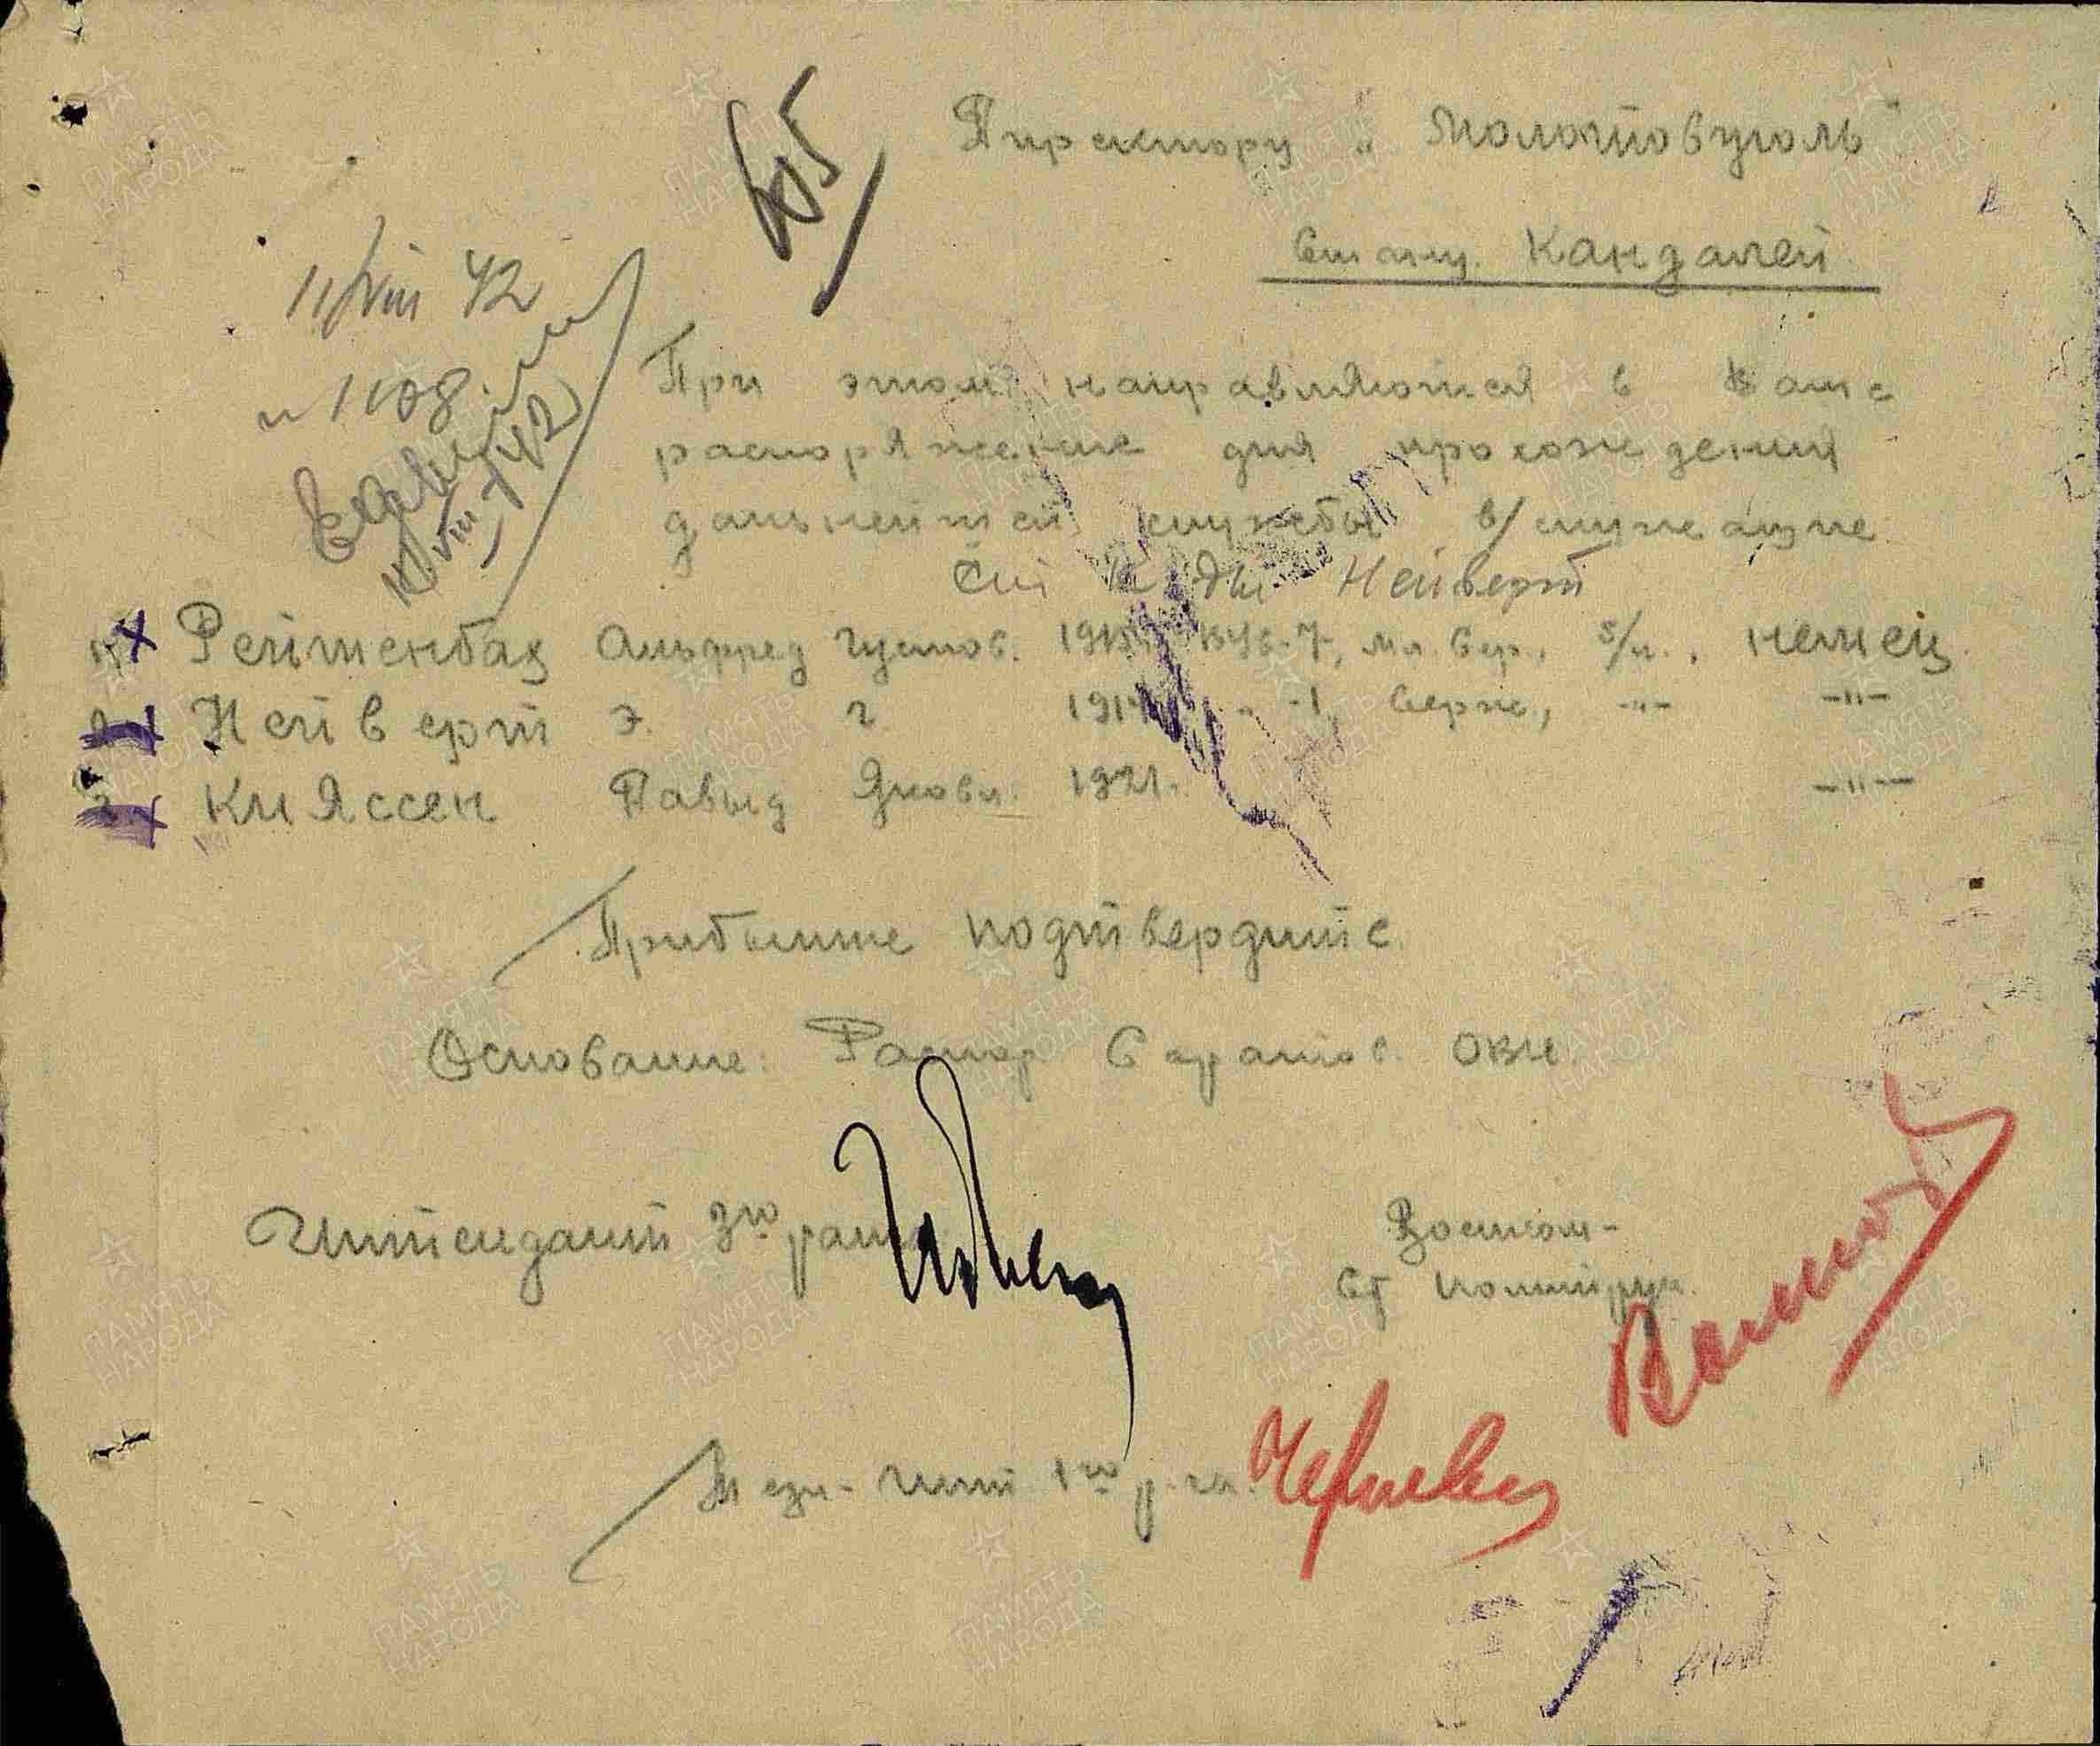 605
Директору „Молотовуголь"
станц. Кандалей
11/VIII 42
н 1108.
11/VIII-42
При этом направляются в ваше
распоряжение для прохождения
дальнейшей службы в/служащие
Нейверт
1. Рейменбах Альфред Густов. 1915г. ВУС-7, мл. вер., б/п., немец
2. Нейверт Э. Г. 1914 -"- -1, серж., -"- -"-
3. Кляссен Давыд Яковл. 1921. -"-
Прибытие подтвердите.
Основание: Распор Саратов. ОВК.
Интендант 3го ранга
Военком-
Ст политрук.
Техн-Инт 1го р-га.
ПАМЯТЬ НАРОДА